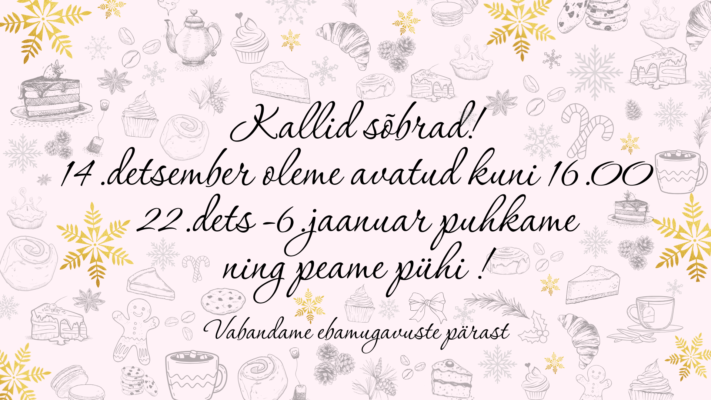 Kallid sõbrad!
14.detsember oleme avatud kuni 16.00
22.dets -6.jaanuar puhkame
ning peame pühi !
Vabandame ebamugavuste pärast